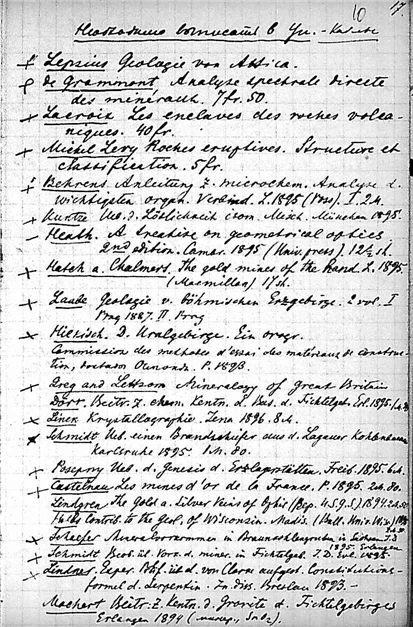 10 17.
Необходимо выписать в Ун. - Кабинет
Lepsius Geologie von Attica.
de Gramont. Analyse spectrale directe
des minéraux. 7fr. 50.
Lacroix Les enclaves des roches volca-
niques. 40 fr.
Michel Levy Roches eruptives. Structure et
classification. 5 fr.
Behrens. Anleitung z. microchem. Analyse d.
wichtigsten organ. Verbind. L. 1895 (Voss). I. 2 M.
Kuntze Ueb. d. Löslichkeit isom. Misch. München 1895.
Heath. A treatise on geometrical optics
2nd edition. Cambr. 1895 (Univ. press). 12½ sh.
Hatch a. Chalmers. The gold mines of the Rand L. 1895.
(Macmillan) 17 sh.
Laube Geologie v. Böhmischen Erzgebirge. 2 vol. I
Prag 1887. II. Prag
Hiekisch. D. Uralgebirge. Ein orogr.
Commission des methodes d'essai des matériaux de construc-
tion, P. 1893.
Greg and Lettsom Mineralogy of Great Britain
Dürr. Beitr. z. chem. Kentn. d. Bas. d. Fichtelgeb. Erl. 1895.
Linck Krystallographie. Jena 1896. 8 M.
Schmidt Ueb. einen Brandschiefer aus d. Lugauer Kohlenbecken
Karlsruhe 1895. 1 M. 80.
Posepny Ueb. d. Genesis d. Erzlagerstätten. Freib. 1895. 6 M.
Castelnau Les mines d'or de la France. P. 1895. 2 M. 80.
Lindgren The gold a. Silver Veins of Ophir (Rep. U.S.G.S.) 1894.
Hobbs Contrib. to the Geol. of Wisconsin. Madis. (Bull. Univ. Wisc.)
Schaefer Mineralvorkommen in Braunkohlengruben in
1895. Erlangen
Schmidt Beob. üb. Vork. d. miner. in Fichtelgeb. I. D. Erl. 1895.
Lindner. Exper. Prüf. üb. d. von Clarke aufgest. Constitutions-
formel d. Serpentin. In. diss. Breslau 1893.-
Machert Beitr. z. Kentn. d. Granite d. Fichtelgebirges
Erlangen 1894